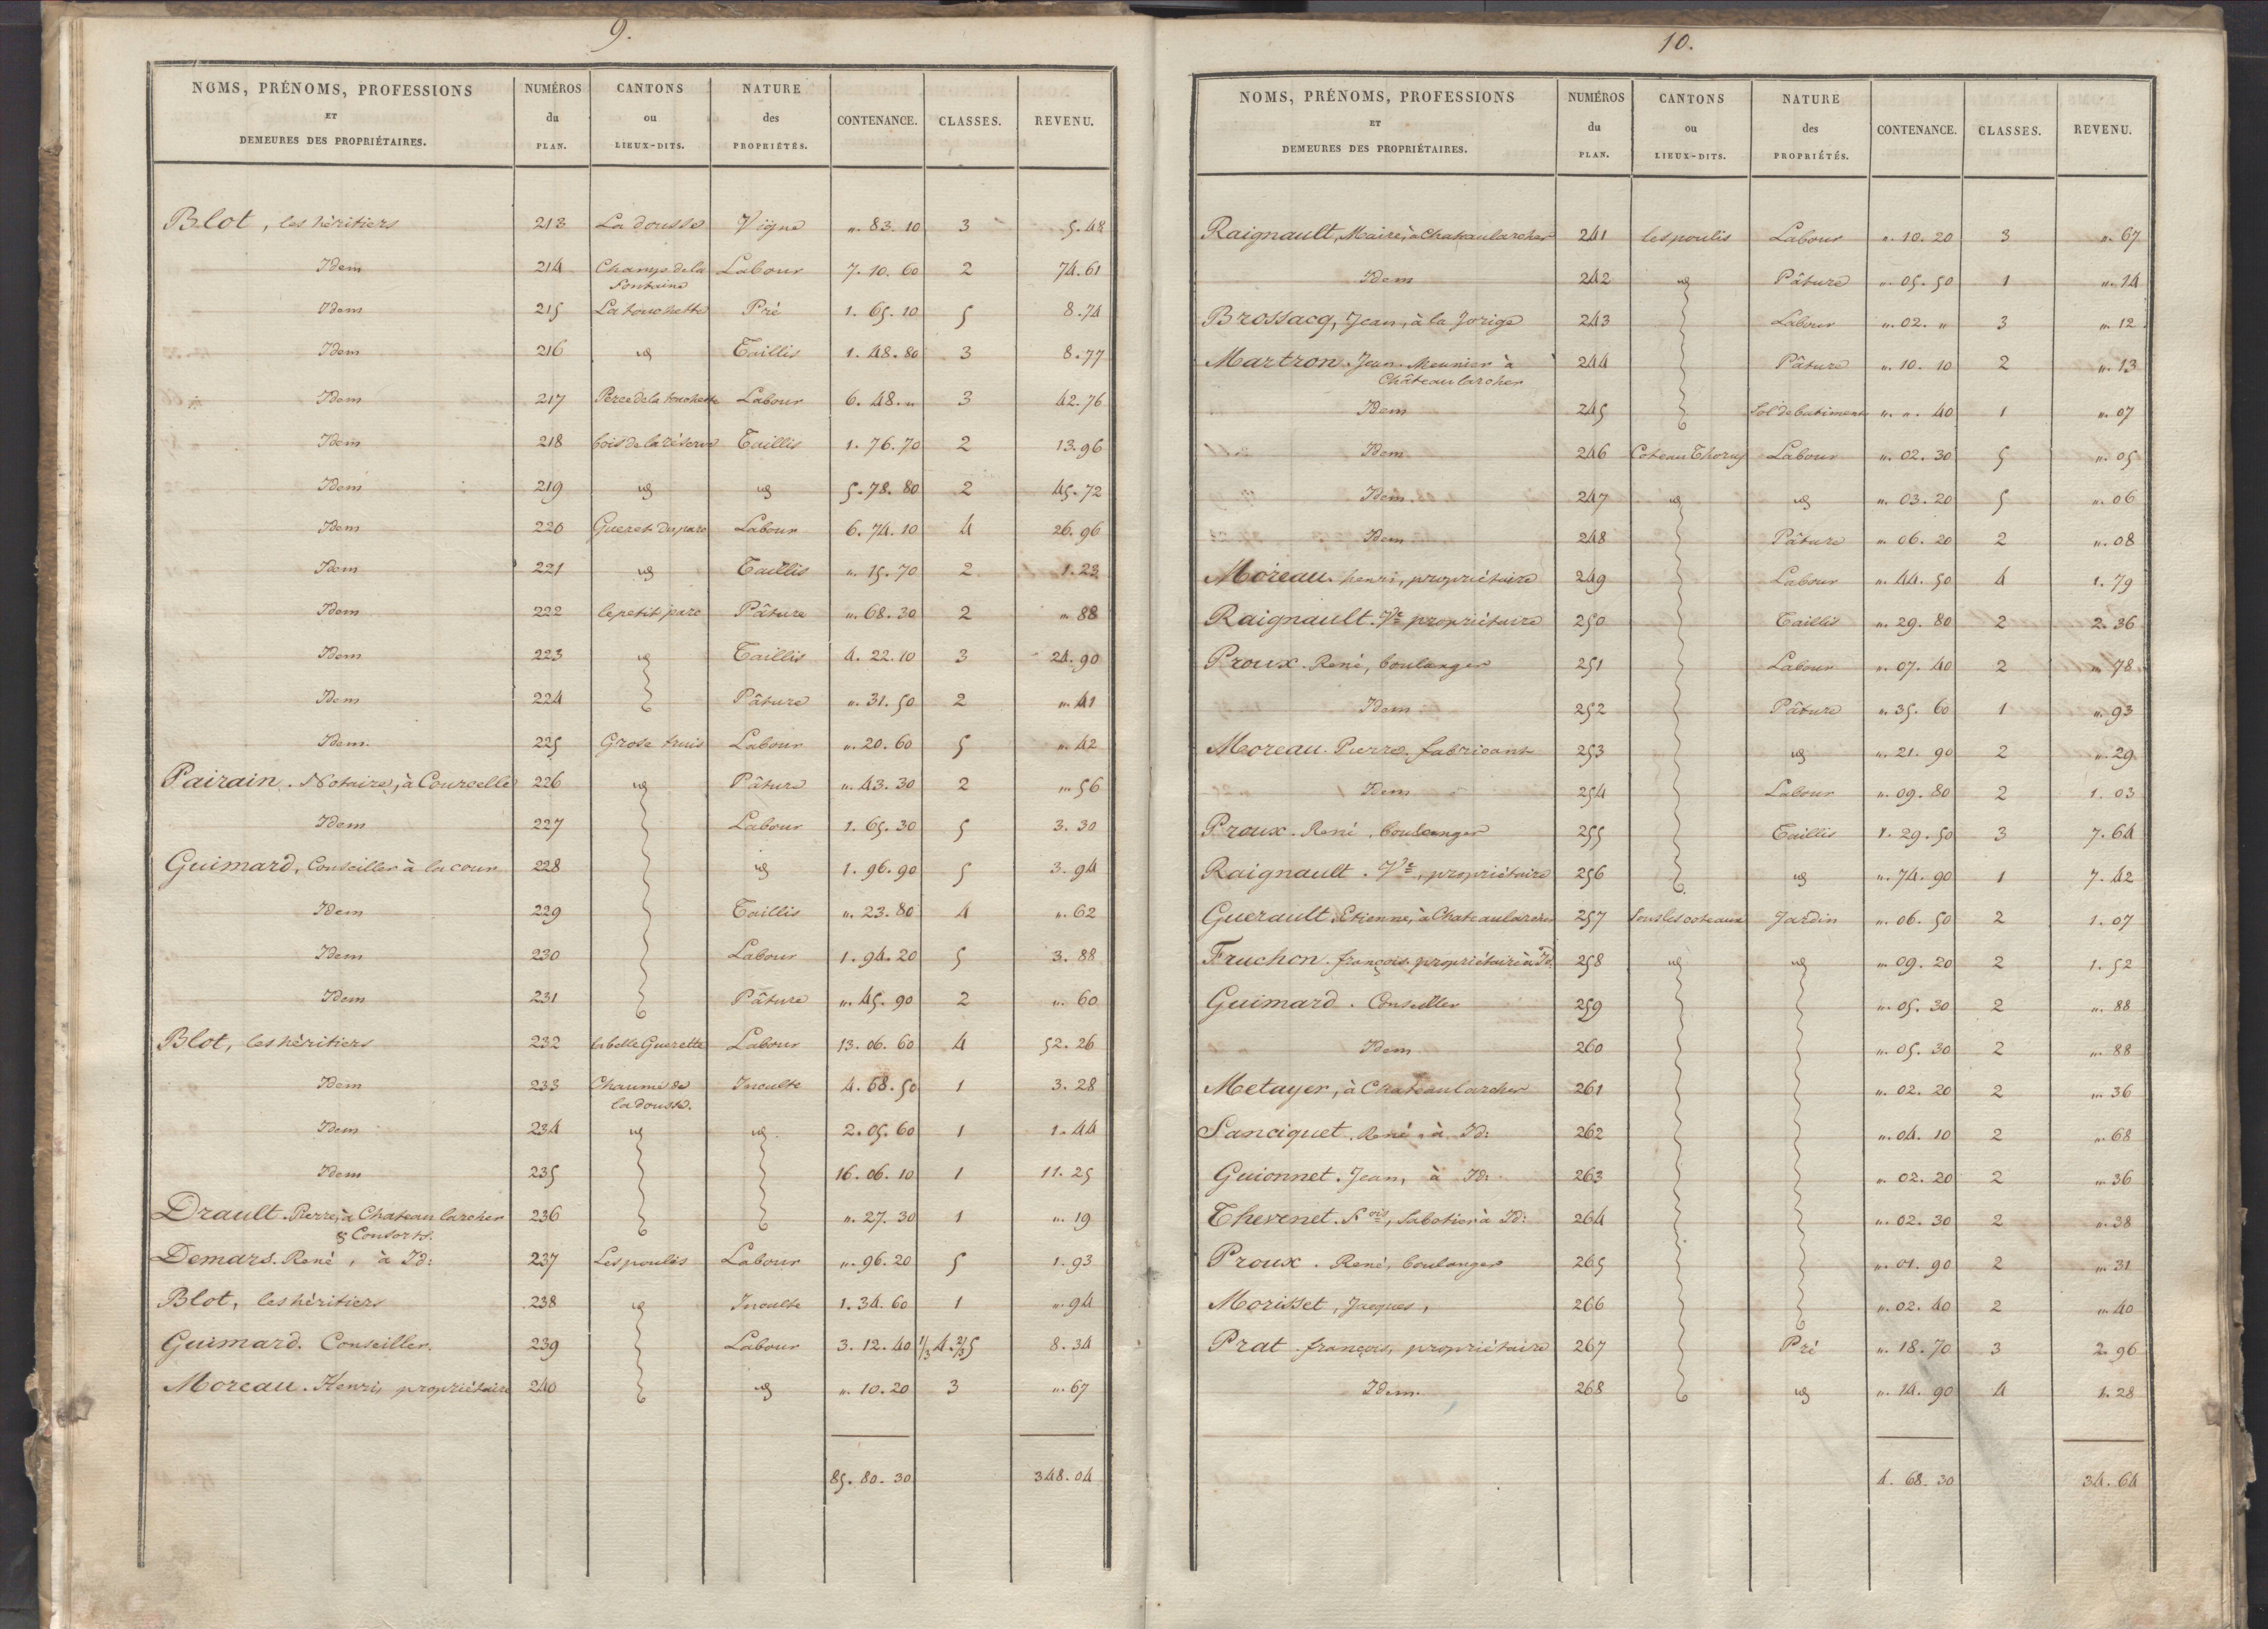 9.
NOMS, PRÉNOMS, PROFESSIONS ET DEMEURES DES PROPRIÉTAIRES. NUMÉROS du PLAN. CANTONS ou LIEUX-DITS. NATURE des PROPRIÉTÉS. CONTENANCE. CLASSES. REVENU.
Blot, les héritiers 213 La dousse Vigne „. 83. 10 3 5. 48
Idem 214 Champ de la fontaine Labour 7. 10. 60 2 74. 61
Idem 215 La touchette Pré 1. 65. 10 5 8. 74
Idem 216 id Taillis 1. 48. 80 3 8. 77
Idem 217 de la touchette Labour 6. 48. „ 3 42. 76
Idem 218 bois de la réserve Taillis 1. 76. 70 2 13. 96
Idem 219 id id 5. 78. 80 2 45. 72
Idem 220 Gueret du parc Labour 6. 74. 10 4 26. 96
Idem 221 id Taillis „. 15. 70 2 1. 23
Idem 222 le petit parc Pâture „. 68. 30 2 „. 88
Idem 223 id Taillis 4. 22. 10 3 24. 90
Idem 224 Pâture „. 31. 50 2 „. 41
Idem. 225 Labour „. 20. 60 5 „. 42
Pairain. Notaire, à Courcelle 226 id Pâture „. 43. 30 2 „. 56
Idem 227 Labour 1. 65. 30 5 3. 30
Guimard, Conseiller à la cour 228 id 1. 96. 90 5 3. 94
Idem 229 Taillis „. 23. 80 4 „. 62
Idem 230 Labour 1. 94. 20 5 3. 88
Idem 231 Pâture „. 45. 90 2 „. 60
Blot, les héritiers 232 la belle Guerette Labour 13. 06. 60 4 52. 26
Idem 233 Chaume de la dousse. Inculte 4. 68. 50 1 3. 28
Idem 234 id id 2. 05. 60 1 1. 44
Idem 235 16. 06. 10 1 11. 25
Drault. Pierre, à Chateaularcher & Consorts. 236 „. 27. 30 1 „. 19
Demars. René, à Id: 237 Les poulis Labour „. 96. 20 5 1. 93
Blot, les héritiers 238 id Inculte 1. 34. 60 1 „. 94
Guimard. Conseiller. 239 Labour 3. 12. 40 1/3 4. 2/3 5 8. 34
Moreau. Henri, propriétaire 240 id „. 10. 20 3 „. 67
85. 80. 30 348. 04
10.
NOMS, PRÉNOMS, PROFESSIONS ET DEMEURES DES PROPRIÉTAIRES. NUMÉROS du PLAN. CANTONS ou LIEUX-DITS. NATURE des PROPRIÉTÉS. CONTENANCE. CLASSES. REVENU.
Raignault, Maire, à Chateaularcher 241 les poulis Labour „. 10. 20 3 „. 67
Idem 242 id Pâture „. 05. 50 1 „. 14
Brossacq, Jean, à la Jorige 243 Labour „. 02. „ 3 „. 12
Martron. Jean. Meunier à Châteaularcher 244 Pâture „. 10. 10 2 „. 13
Idem 245 Sol de batiment „. „. 40 1 „. 07
Idem 246 Coteau Thorus Labour „. 02. 30 5 „. 05
Idem. 247 id id „. 03. 20 5 „. 06
Idem 248 Pâture „. 06. 20 2 „. 08
Moreau. henri, propriétaire 249 Labour „. 44. 50 4 1. 79
Raignault. Ve propriétaire 250 Taillis „. 29. 80 2 2. 36
Proux. René, boulanger 251 Labour „. 07. 40 2 „. 78
Idem 252 Pâture „. 35. 60 1 „. 93
Moreau. Pierre. fabricant 253 id „. 21. 90 2 „. 29
Idem 254 Labour „. 09. 80 2 1. 03
Proux. René, boulanger 255 Taillis 1. 29. 50 3 7. 64
Raignault. Ve, propriétaire 256 id „. 74. 90 1 7. 42
Guerault. Etienne, à Chateaularcher 257 Sous les coteaux Jardin „. 06. 50 2 1. 07
Fruchon. françois. propriétaire à Id. 258 id id „. 09. 20 2 1. 52
Guimard. Conseiller 259 „. 05. 30 2 „. 88
Idem 260 „. 05. 30 2 „. 88
Metayer, à Chateaularcher 261 „. 02. 20 2 „. 36
Sanciquet. René. à Id: 262 „. 04. 10 2 „. 68
Guionnet. Jean, à Id: 263 „. 02. 20 2 „. 36
Thevenet. fois, Sabotier à Id: 264 „. 02. 30 2 „. 38
Proux. René, boulanger 265 „. 01. 90 2 „. 31
Morisset, Jacques, 266 „. 02. 40 2 „. 40
Prat. françois, propriétaire 267 Pré „. 18. 70 3 2. 96
Idem. 268 id „. 14. 90 4 1. 28
4. 68. 30 34. 64